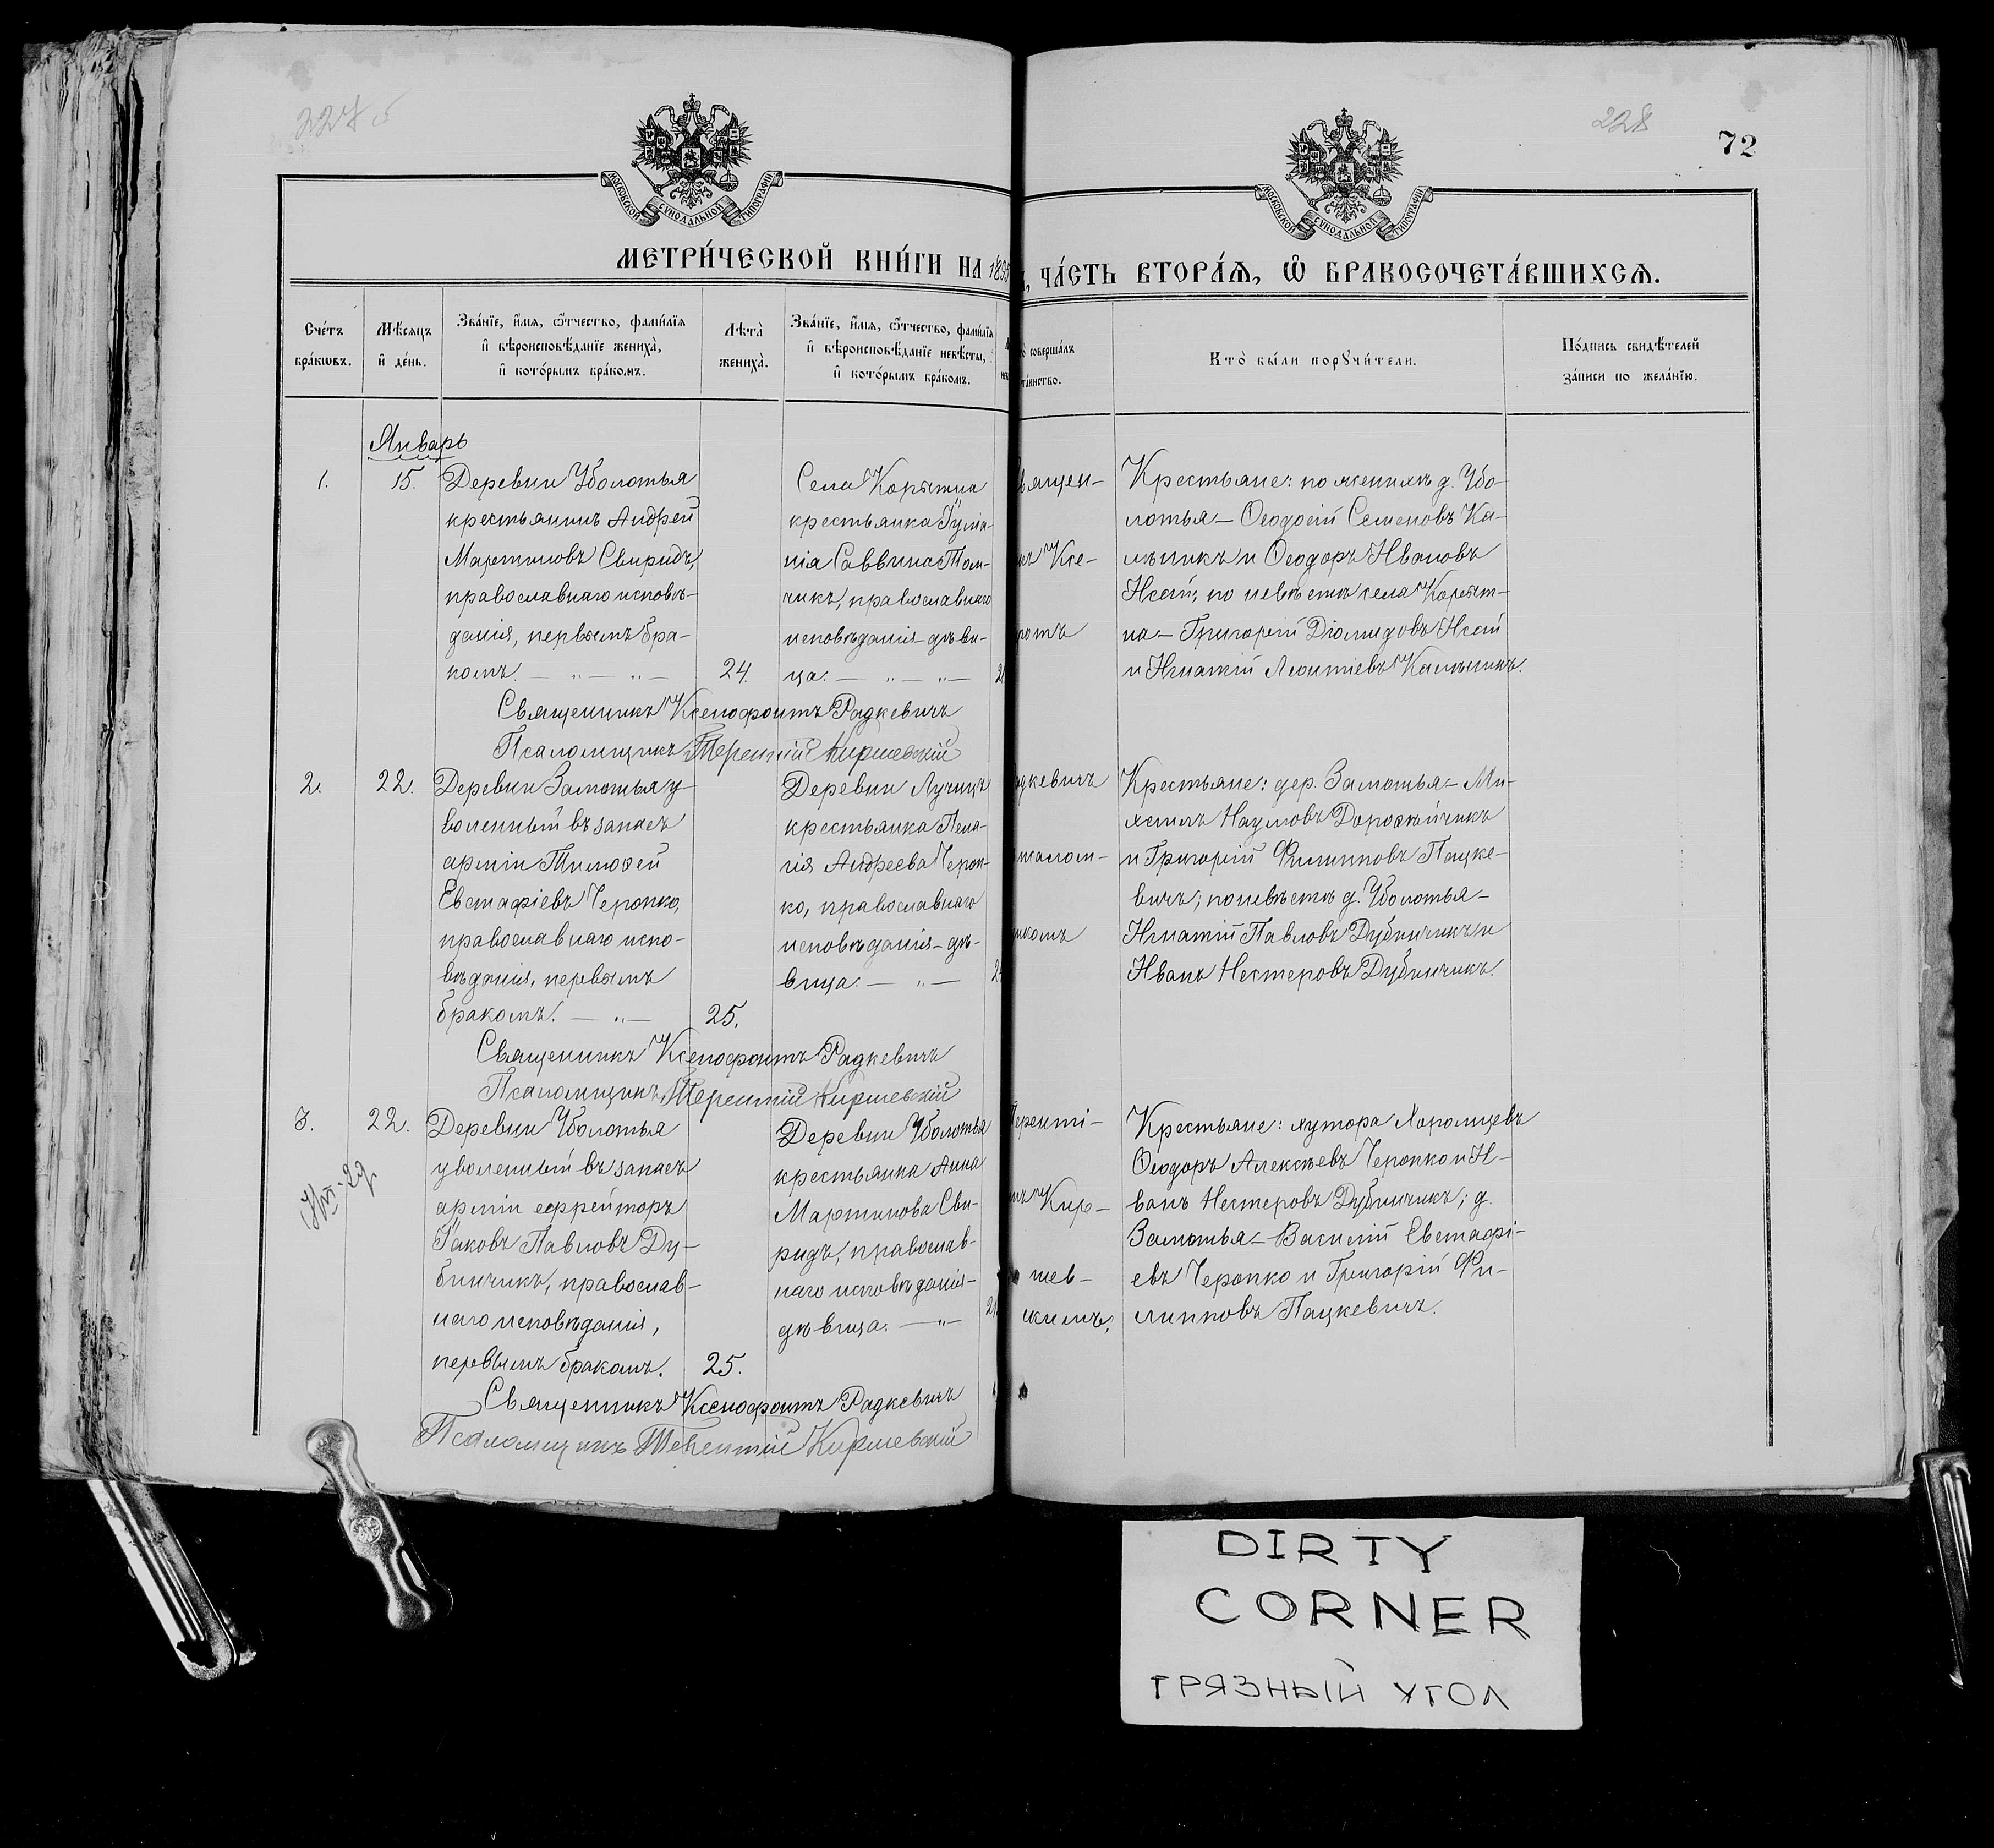 228
72
МОСКОВСКОЙ СѴНОДАЛЬНОЙ ТИПОГРАФІИ
МОСКОВСКОЙ СѴНОДАЛЬНОЙ ТИПОГРАФІИ
МЕТРИ́ЧЕСКОЙ КНИ́ГИ НА 1895
, ЧА́СТЬ ВТОРА́Ѧ, Ѽ БРАКОСОЧЕТА́ВШИХСѦ.
Сче́тъ
бра́кѡвъ.
Мѣ́сѧцъ
и҆ де́нь.
Зва́нїе, и҆́мѧ, ѻ҆́тчество, фами́лїѧ
и҆ вѣроисповѣ́данїе жениха̀,
и҆ кото́рымъ бра́комъ.
Лѣта̀
жениха̀.
Зва́нїе, и҆́мѧ, ѻ҆́тчество, фами́лїѧ
и҆ вѣроисповѣ́данїе невѣ́сты,
и҆ кото́рымъ бра́комъ.
соверша́лъ
та́инство.
Кто̀ бы́ли порꙋчи́тели.
По́дпись свидѣ́телей
за́писи по жела́нїю.
Январь
1.
15.
Деревни Уболотья
крестьянинъ Андрей
Мартиновъ Свиридъ,
православнаго исповѣ-
данія, первымъ бра-
комъ. — „ — „ —
24.
Села Корытна
крестьянка Іулiа-
нія Саввина Том-
чикъ, православнаго
исповѣданія – дѣви-
ца. — „ — „ —
вящен-
къ Ксе-
Крестьяне: по женихѣ д. Убо-
лотья – Ѳеодосій Семеновъ Ка-
мыникъ и Ѳеодоръ Ивановъ
по невѣстѣ села Корыт-
на – Григорій Діомидовъ
и Игнатій Леонтіевъ
Священникъ Ксенофонтъ Радкевичъ
Псаломщикъ Терентій Киршевскій
2.
22.
Деревни Замотья у-
воленный въ запасъ
арміи Тимоѳей
Евстафіевъ Черопко,
православнаго испо-
вѣданія, первымъ
бракомъ. — „ —
25.
Деревни Лучицъ
крестьянка Пела-
гія Андреева Чероп-
ко, православнаго
исповѣданія – дѣ-
вица. — „ —
дкевичъ
саломъ-
икомъ
Крестьяне: дер. Замотья – Ми-
хаилъ Наумовъ Доросѣйчикъ
и Григорій Филипповъ Пацке-
вичъ; по невѣстѣ д. Уболотья –
Игнатій Павловъ Дубинчикъ и
Иванъ Нестеровъ Дубинчикъ.
Священникъ Ксенофонтъ Радкевичъ
Псаломщикъ Терентій Киршевскій
3.
22.
Деревни Уболотья
уволенный въ запасъ
арміи ефрейторъ
Іаковъ Павловъ Ду-
бинчикъ, православ-
наго исповѣданія,
первымъ бракомъ.
25.
Деревни Уболотья
крестьянка Анна
Мартинова Сви-
ридъ, православ-
наго исповѣданія –
дѣвица. — „
еренті-
мъ Кир-
шев-
скимъ.
Крестьяне: хутора Хоромцевъ
Ѳеодоръ Алексѣевъ Черопко и И-
ванъ Нестеровъ Дубинчикъ; д.
Замотья – Василій Евстафі-
евъ Черопко и Григорій Фи-
липповъ Пацкевичъ.
Священникъ Ксенофонтъ Радкевичъ
Псаломщикъ Терентій Киршевскій
DIRTY
CORNER
ГРЯЗНЫЙ УГОЛ